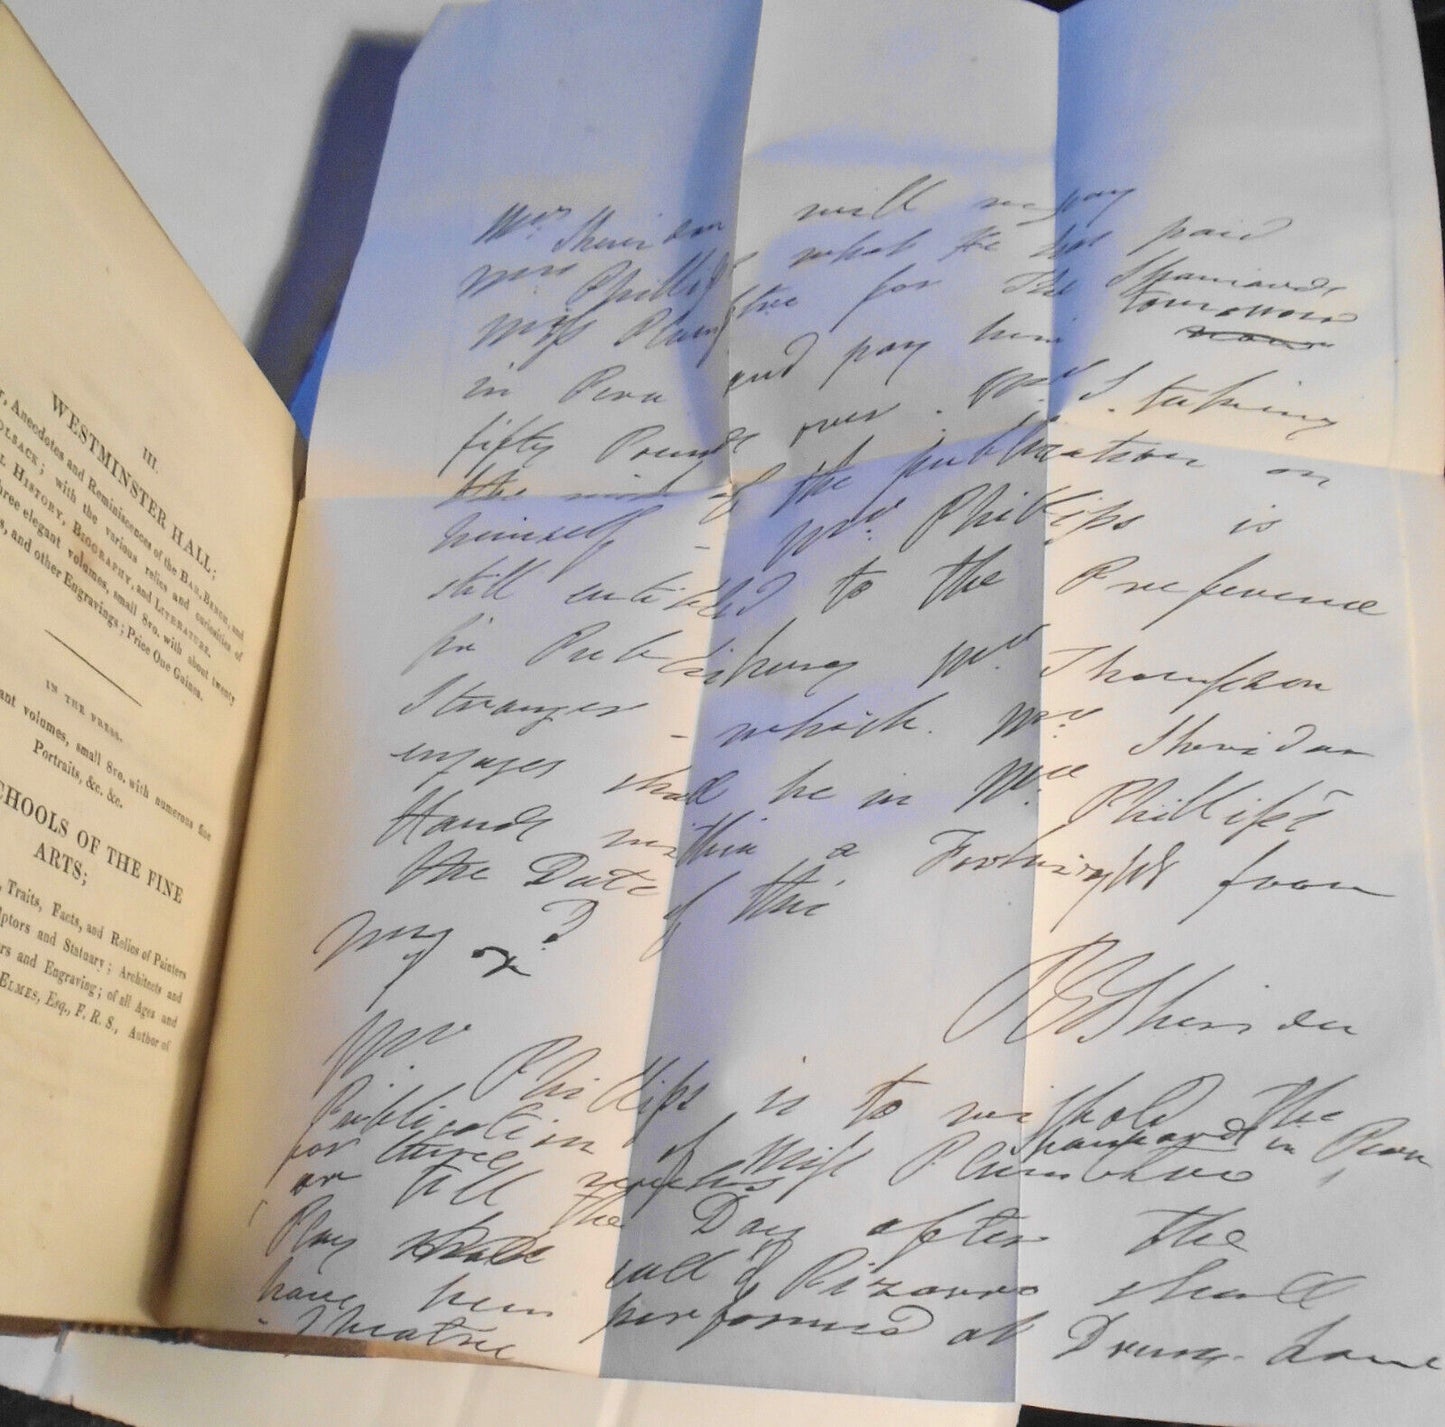 III.
WESTMINSTER HALL;
, Anecdotes and Reminiscences of the BAR, BENCH, and
OLSACK; with the various relics and curiosities of
L HISTORY, BIOGRAPHY, and LITERATURE.
hree elegant volumes, small 8vo. with about twenty
s, and other Engravings; Price One Guinea.
IN THE PRESS.
ant volumes, small 8vo. with numerous fine
Portraits, &c. &c.
CHOOLS OF THE FINE
ARTS;
, Traits, Facts, and Relics of Painters
ptors and Statuary; Architects and
rs and Engraving; of all Ages and
ELMES, Esq., F. R. S., Author of
Mr. Sheridan will repay
Mr Phillips what he has paid
Miss Plumptre for The Spaniards
in Peru and pay him tomorrow
fifty Pounds over. Mr. S. taking
the risk of the publication on
himself - Mr. Phillips is
still entitled to the Preference
in Publishing Mr. Thompson
Stranger - which Mr. Sheridan
engages shall be in Mr. Phillips's
Hands within a Fortnight from
the Date of this
RBSheridan
Mr Phillips is to withold the
Publication of Miss Plumptre in Peru
for three weeks
or till the Day after the
Play call'd Pizarro shall
have been performed at Drury-Lane
Theatre